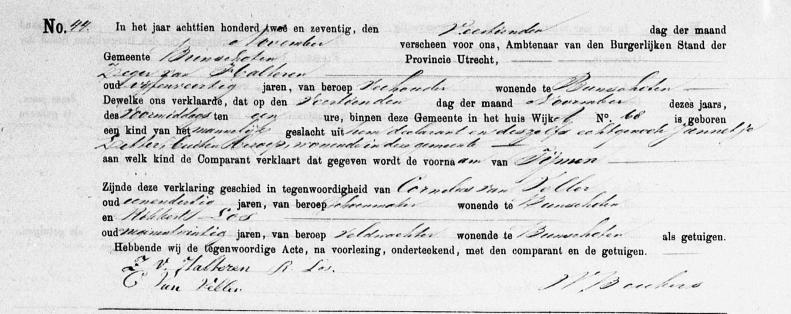 No. 44. In het jaar achttien honderd twee en zeventig, den Veertienden dag der maand
November verscheen voor ons, Ambtenaar van den Burgerlijken Stand der
Gemeente Bunschoten Provincie Utrecht,
Zeger van Halteren
oud jaren, van beroep Veehouder wonende te Bunschoten
Dewelke ons verklaarde, dat op den Veertienden dag der maand November dezes jaars,
des Voormiddags ten een ure, binnen deze Gemeente in het huis Wijk No. 68 is geboren
een kind van het mannelijk geslacht uit hem declarant en deszelfs echtgenoot Jannetje
buiten beroep wonende in deze gemeente
aan welk kind de Comparant verklaart dat gegeven wordt de voornaam van Tijmen
Zijnde deze verklaring geschied in tegenwoordigheid van Cornelis van Veller
oud eenendertig jaren, van beroep schoenmaker wonende te Bunschoten
en Los
oud jaren, van beroep Veldwachter wonende te Bunschoten als getuigen.
Hebbende wij de tegenwoordige Acte, na voorlezing, onderteekend, met den comparant en de getuigen.
Z. v. Halteren R. Los.
C. van Veller